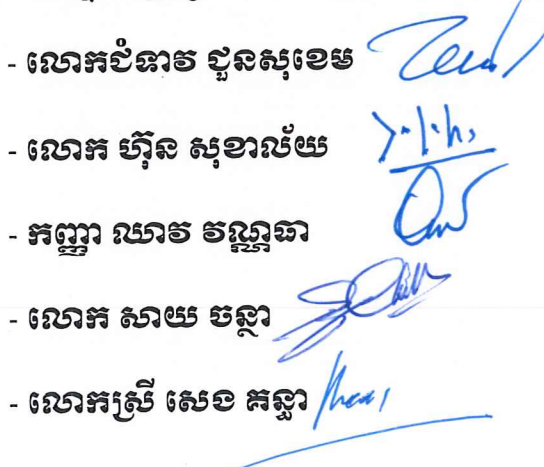 - លោកជំទាវ ជួនសុខេម
- លោក ហ៊ុន សុខាល័យ
- កញ្ញា ឈាវ វណ្ណធា
- លោក សាយ ចន្ថា
- លោកស្រី សេង គន្ធា